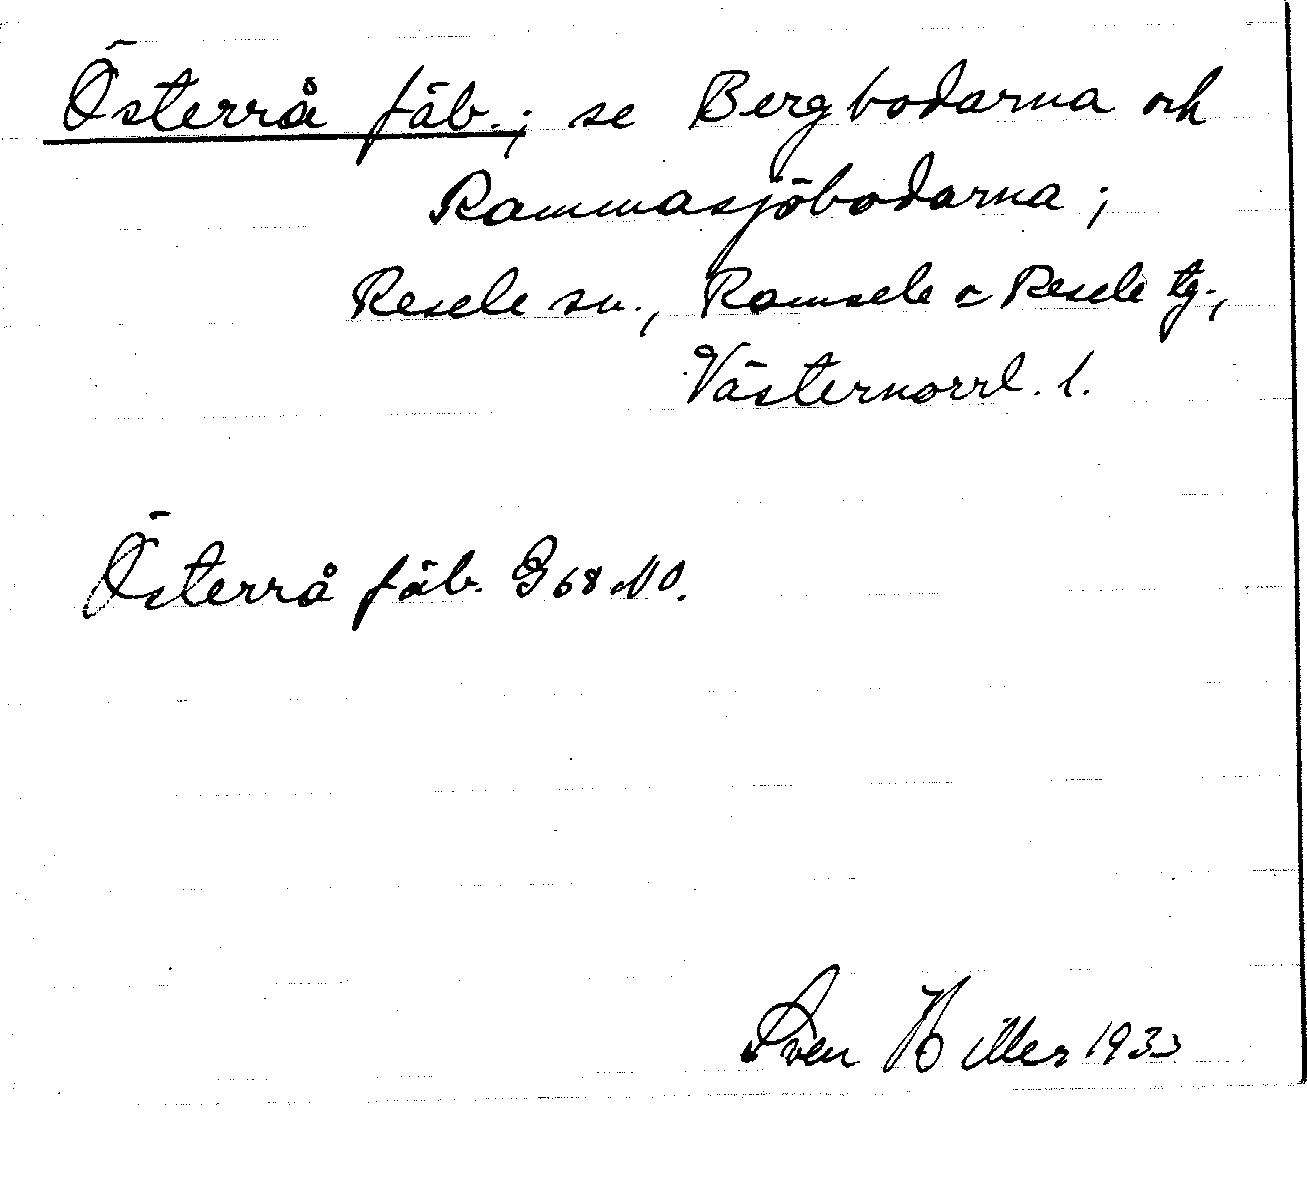 Österrå fäb.; se Bergbodarna och
Rammasjöbodarna;
Resele sn., Ramsele o Resele tg.,
Västernorrl. l.
Österrå fäb. G 68 NO.
Sven Hiller 1933